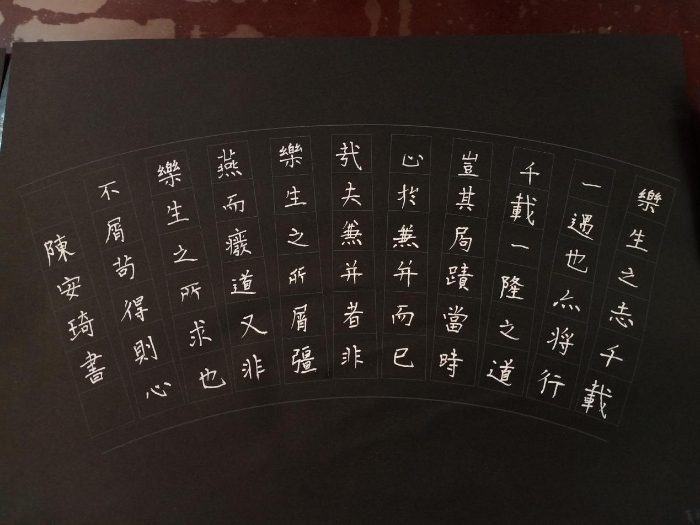 樂生之志千載
一遇也亦將行
千載一隆之道
豈其局蹟當時
心於兼并而已
哉夫兼并者非
樂生之所屑彊
燕而癈道又非
樂生之所求也
不屑茍得則心
陳安琦書